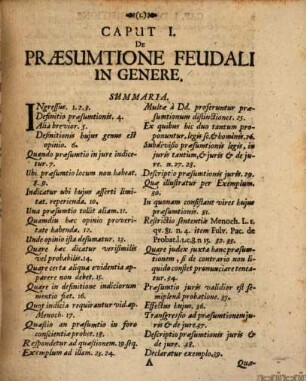 (1.)
CAPUT I.
De
PRÆSUMTIONE FEUDALI
IN GENERE.
SUMMARIA.
INgressus. 1. 2. 3.
Definitio præsumtionis. 4.
Alia brevior. 5.
Definitionis hujus genus est
opinio. 6.
Quando præsumtio in jure indice-
tur. 7.
Ubi præsumtio locum non habeat.
8. 9.
Indicatur ubi hujus asserti limi-
tat. reperienda. 10.
Una præsumtio tollit aliam. 11.
Quamdiu hæc opinio proveri-
tate habenda. 12.
Unde opinio ista desumatur. 13.
Quare hæc dicatur verisimilis
vel probabilis. 14.
Quare certa aliqua evidentia ap-
parere non debet. 15.
Quare in definitione indiciorum
mentio fiat. 16.
Quot indicia requirantur vid. ap.
Menoch. 17.
Quæstio an præsumtio in foro
conscientiæ habeatur. 18.
Respondetur ad quæstionem. 19. seq.
Exemplum ad illam. 23. 24.
Multæ à Dd. proferuntur præ-
sumtionum distinctiones. 25.
Ex quibus hic duo tantum pro-
ponuntur, legis sc. & hominis. 26.
Subdivisio præsumtionis legis, in
juris tantum, & juris & de ju-
re. n. 27. 28.
Descriptio præsumtionis juris. 29.
Quæ illustratur per Exemplum.
30.
In quonam consistant vires hujus
præsumtionis. 31.
Restrictio sententiæ Menoch. L. 1.
qv. 31. n. 4. item Fulv. Pac. de
Probat. l. 1. c. 8. n. 15. 32. 33.
Quare judex juxta hanc præsum-
tionem, si de contrario non li-
quido constet pronunciare tenea-
tur. 34.
Præsumtio juris validior est se-
miplenâ probatione. 35.
Effectus hujus. 36.
Transgressio ad præsumtionem ju-
ris & de jure. 37.
Descriptio præsumtionis juris &
de jure. 38.
Declaratur exemplo. 39.
A
Quæ-